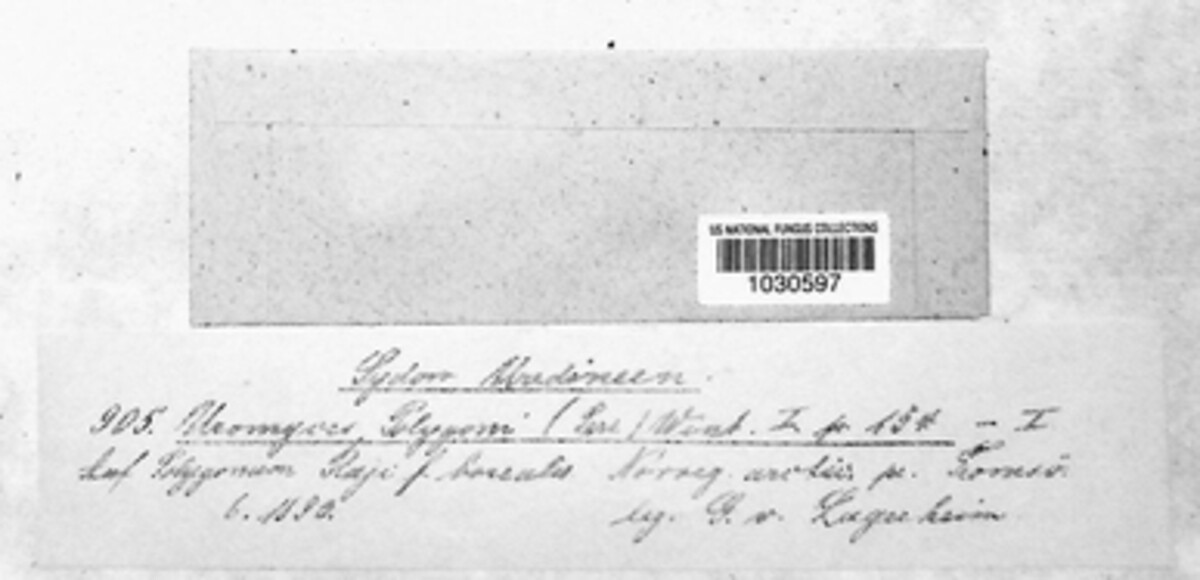 US NATIONAL FUNGUS COLLECTIONS
1030597
Sydow Uredineen.
905. Uromyces Polygoni (Pers.) Wint. I p. 154 - I
Auf Polygonum Raji f. borealis Norveg. arctic. pr. Tromsö.
6. 1890. leg. G. v. Lagerheim